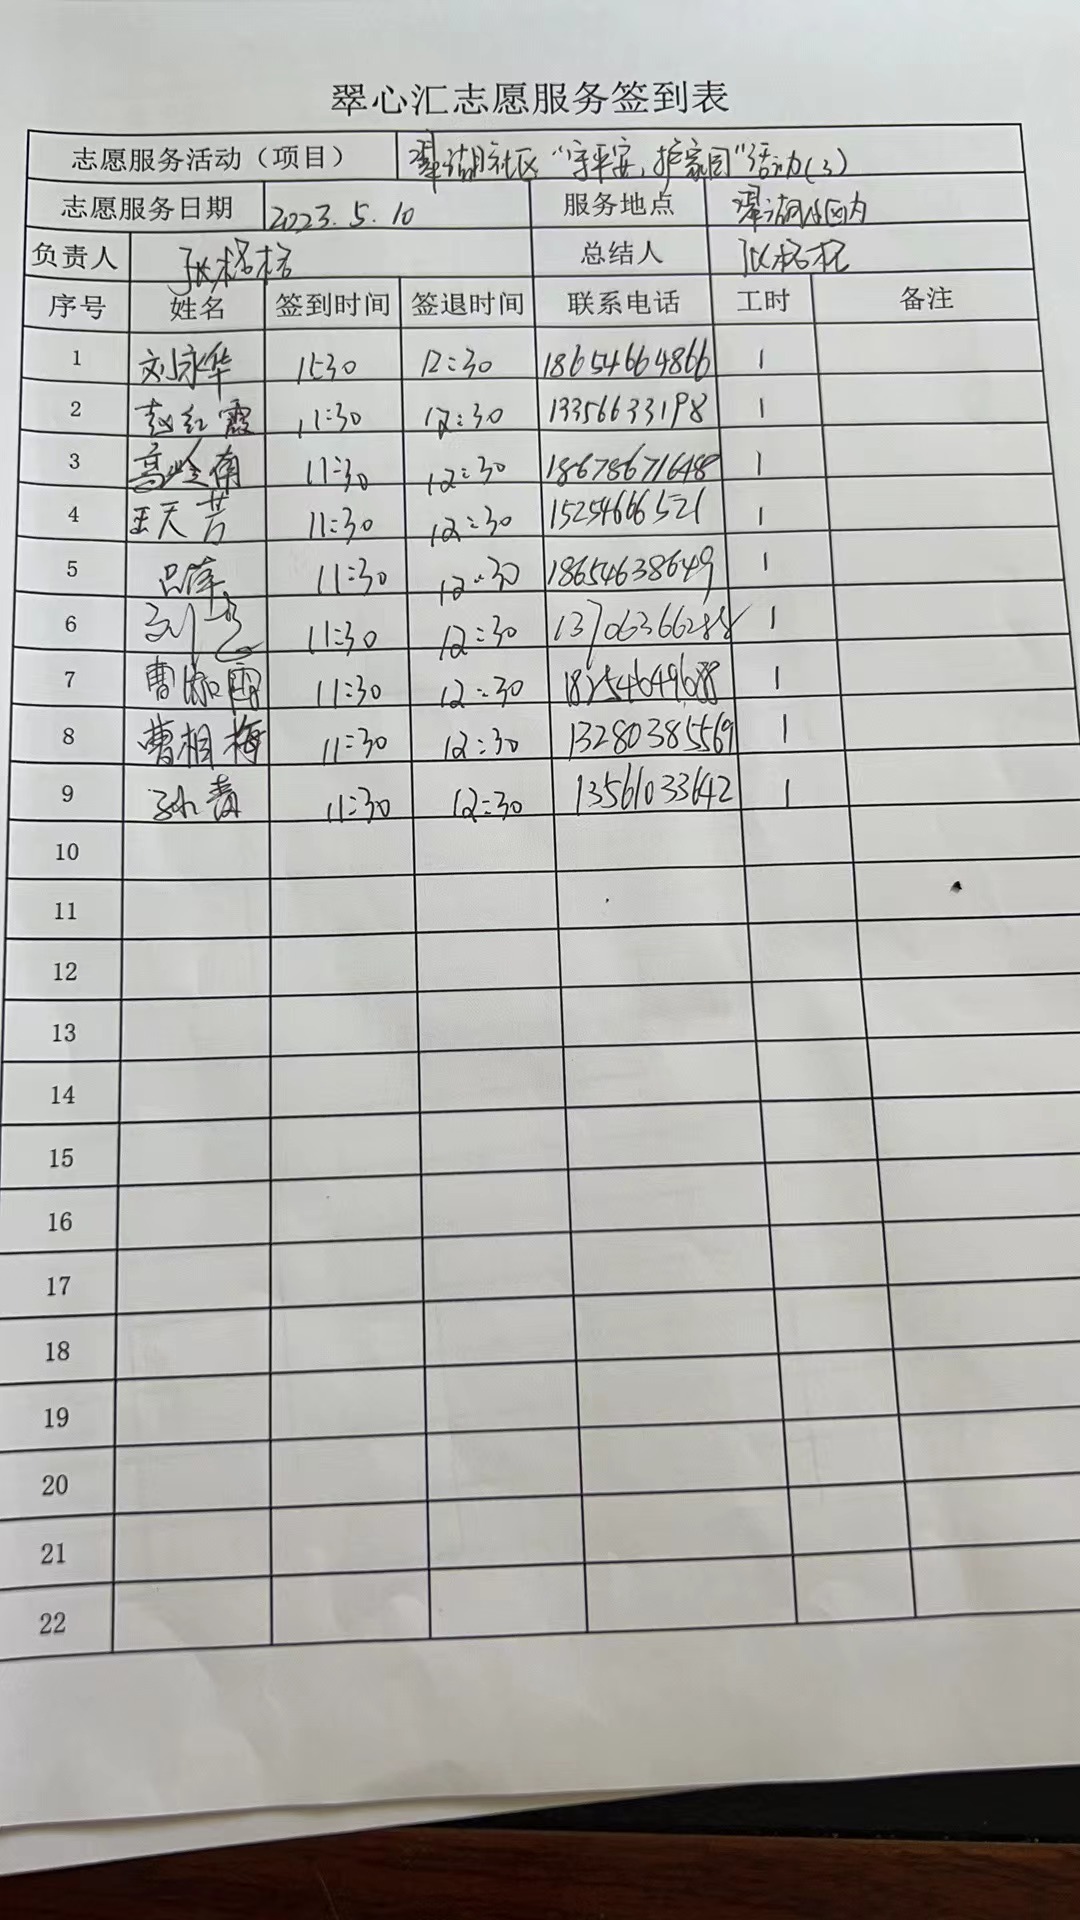 翠心汇志愿服务签到表
志愿服务活动（项目） 翠湖社区“守平安，护家园”活动(3)
志愿服务日期 2023.5.10 服务地点 翠湖社区内
负责人 张格格 总结人 张格格
序号 姓名 签到时间 签退时间 联系电话 工时 备注
1 刘永华 11:30 12:30 18654664866 1
2 赵红霞 11:30 12:30 13356633198 1
3 高岭南 11:30 12:30 18678671648 1
4 王天芳 11:30 12:30 15254666521 1
5 吕萍 11:30 12:30 18654638649 1
6 11:30 12:30 1
7 曹淑雨 11:30 12:30 18254649688 1
8 曹相梅 11:30 12:30 13280385569 1
9 孙青 11:30 12:30 13561033642 1
10
11
12
13
14
15
16
17
18
19
20
21
22